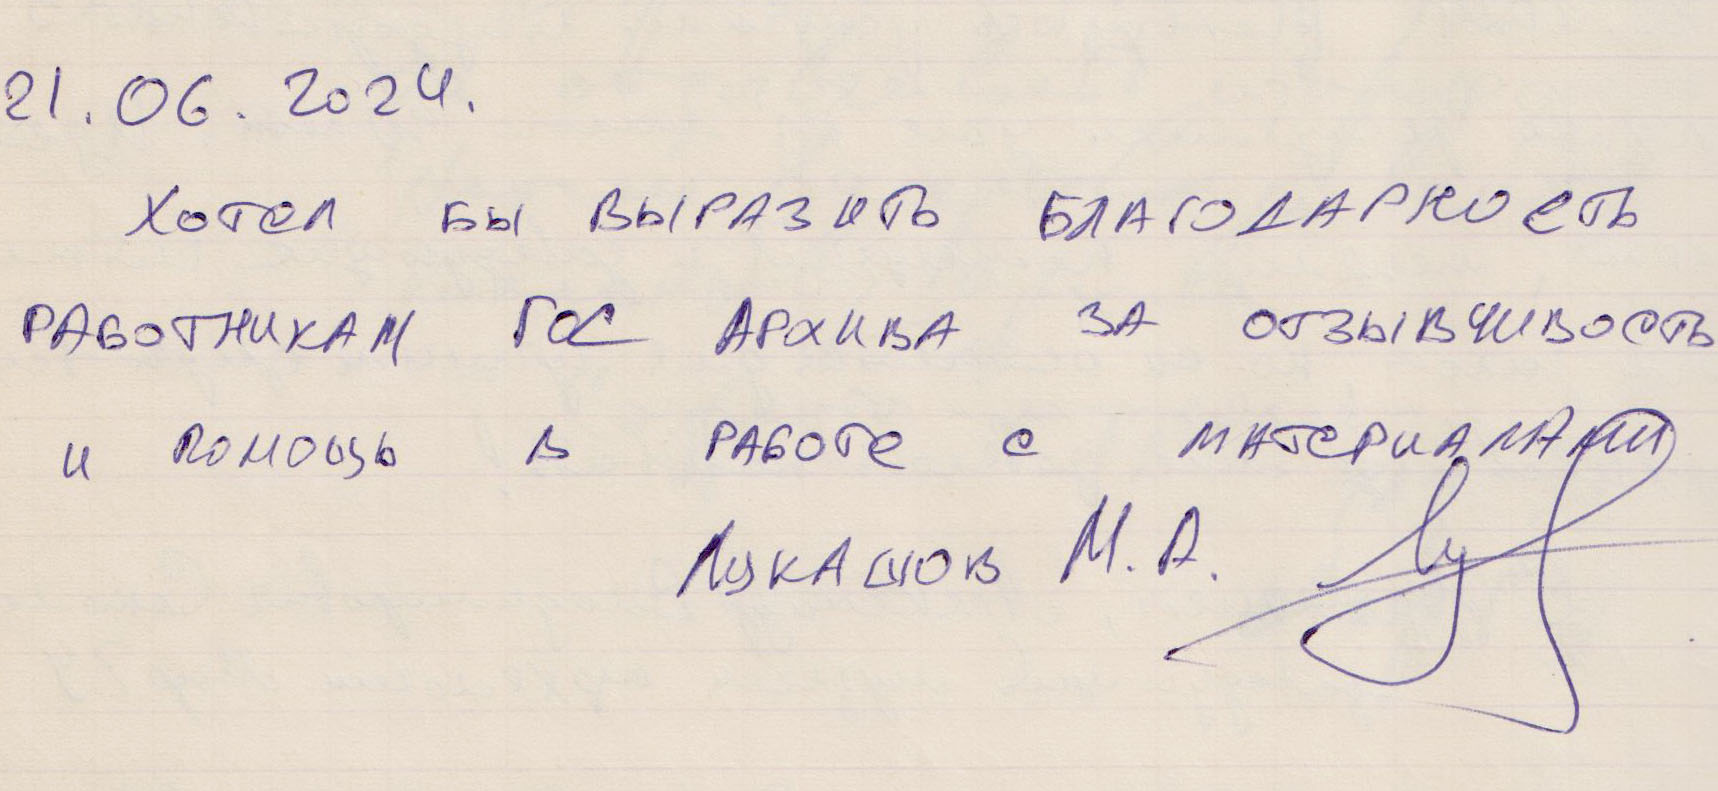 21.06.2024.
Хотел бы выразить благодарность
работникам Гос Архива за отзывчивость
и помощь в работе с материалами
Лукашов М.А.